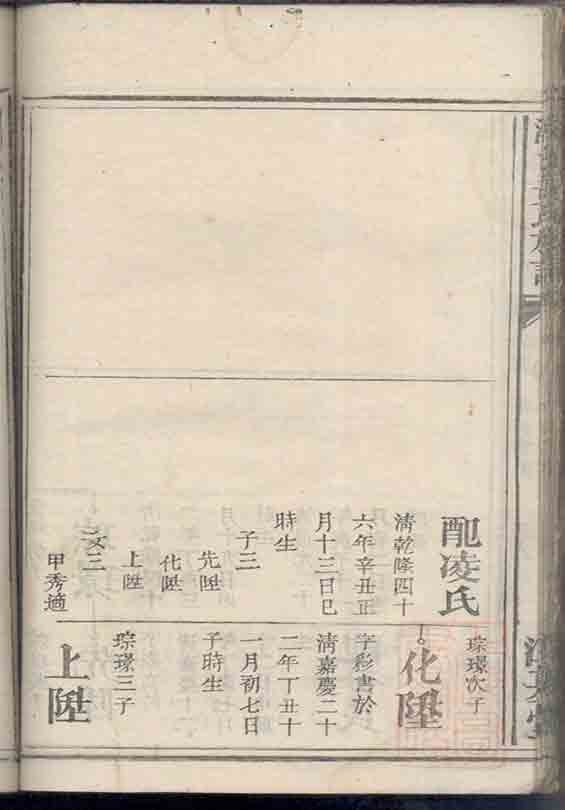 配凌氏
清乾隆四十
六年辛丑正
月十三日巳
時生
子三
先陞
化陞
上陞
女二
甲秀適
琮璟次子
化陞
字彩書於
清嘉慶二十
二年丁丑十
一月初七日
子時生
琮璟三子
上陞